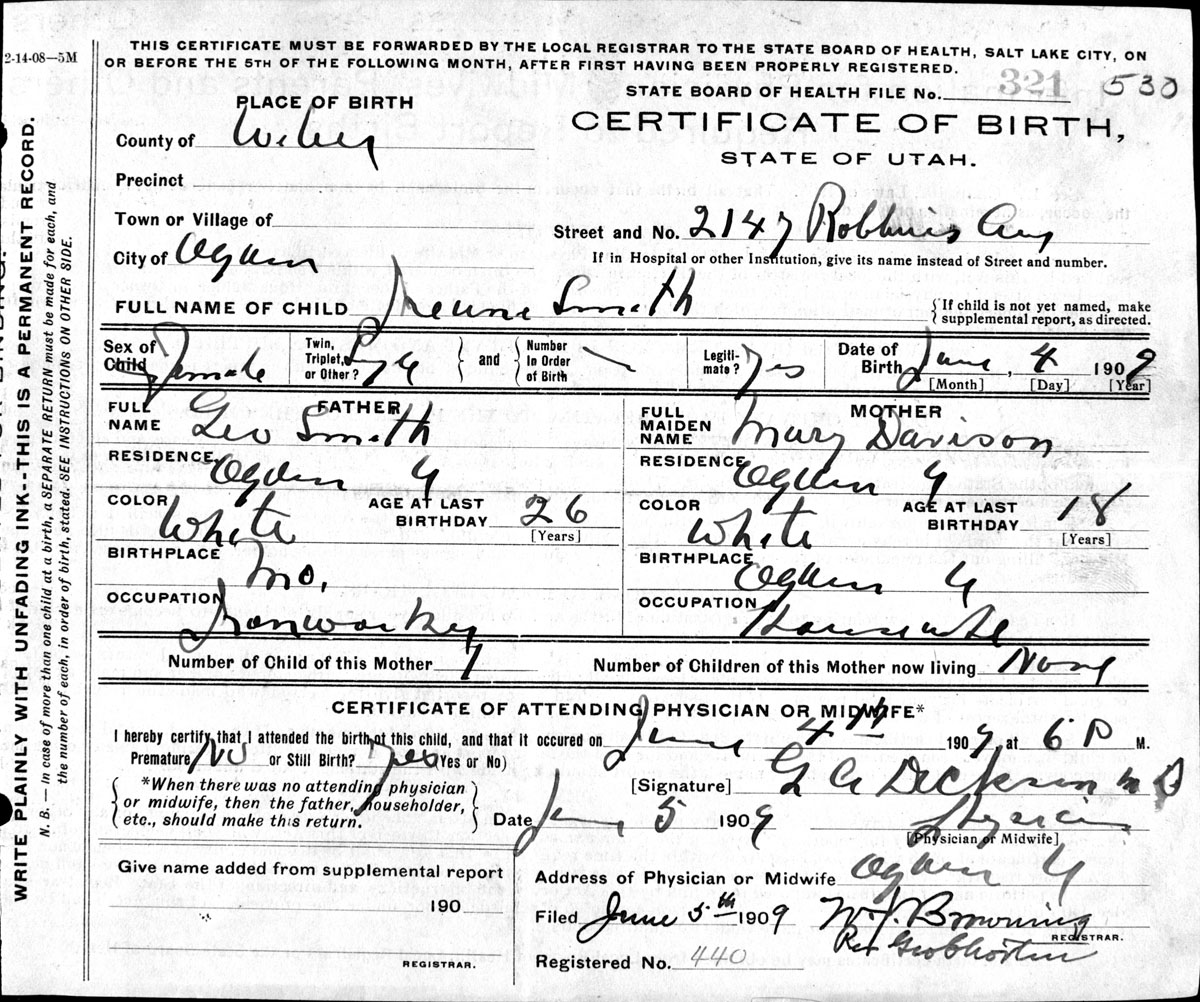 2-14-08—5M
THIS CERTIFICATE MUST BE FORWARDED BY THE LOCAL REGISTRAR TO THE STATE BOARD OF HEALTH, SALT LAKE CITY, ON
OR BEFORE THE 5TH OF THE FOLLOWING MONTH, AFTER FIRST HAVING BEEN PROPERLY REGISTERED.
STATE BOARD OF HEALTH FILE No. 321 530
PLACE OF BIRTH
CERTIFICATE OF BIRTH,
STATE OF UTAH.
County of Weber
Precinct
Town or Village of
Street and No. 2147 Robbins Ave
City of Ogden
If in Hospital or other Institution, give its name instead of Street and number.
FULL NAME OF CHILD Smith
{If child is not yet named, make
supplemental report, as directed.
Sex of
Child Female
Twin,
Triplet,
or Other?
and
Number
In Order
of Birth
Legiti-
mate? Yes
Date of
Birth June, 4 1909
[Month] [Day] [Year]
FATHER
FULL
NAME Geo Smith
MOTHER
FULL
MAIDEN
NAME Mary Davison
RESIDENCE Ogden U
RESIDENCE Ogden U
COLOR White
AGE AT LAST
BIRTHDAY 26
[Years]
COLOR White
AGE AT LAST
BIRTHDAY 18
[Years]
BIRTHPLACE Mo.
BIRTHPLACE Ogden U
OCCUPATION Ironworker
OCCUPATION Housewife
Number of Child of this Mother 1
Number of Children of this Mother now living None
CERTIFICATE OF ATTENDING PHYSICIAN OR MIDWIFE*
I hereby certify that I attended the birth of this child, and that it occured on June 4th 1909, at 6 P M.
Premature No or Still Birth? Yes (Yes or No)
*When there was no attending physician
or midwife, then the father, householder,
etc., should make this return.
[Signature] Dickson M D
Date June 5 1909
Physician
[Physician or Midwife]
Give name added from supplemental report
190
REGISTRAR.
Address of Physician or Midwife Ogden U
Filed June 5th 1909 W. J. Browning
REGISTRAR.
Registered No. 440
WRITE PLAINLY WITH UNFADING INK--THIS IS A PERMANENT RECORD.
N. B. — In case of more than one child at a birth, a SEPARATE RETURN must be made for each, and
the number of each, in order of birth, stated. SEE INSTRUCTIONS ON OTHER SIDE.